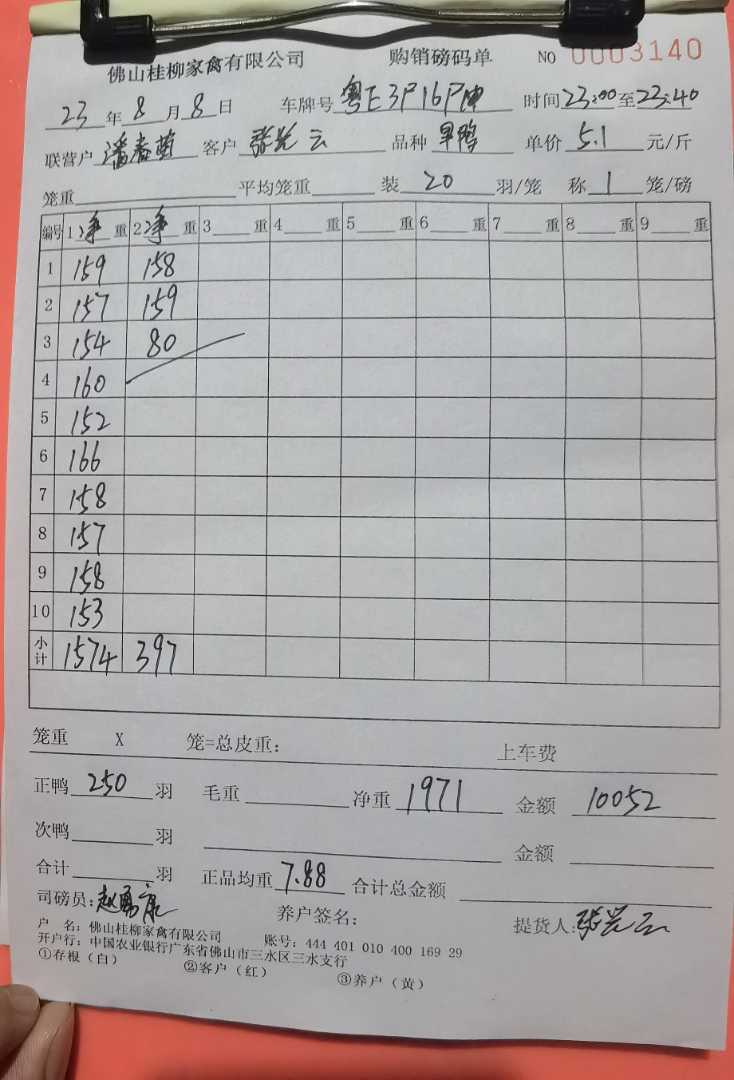 佛山桂柳家禽有限公司 购销磅码单 NO 0003140
23年8月8日 车牌号 粤E 时间23:00至23:40
联营户 潘春苗 客户 张光云 品种 旱鸭 单价 5.1 元/斤
笼重 平均笼重 装 20 羽/笼 称 1 笼/磅
编号 1净重 2净重 3重 4重 5重 6重 7重 8重 9重
1 159 158
2 157 159
3 154 80
4 160
5 152
6 166
7 158
8 157
9 158
10 153
小计 1574 397
笼重 X 笼=总皮重: 上车费
正鸭 250 羽 毛重 净重 1971 金额 10052
次鸭 羽 金额
合计 羽 正品均重 7.88 合计总金额
司磅员: 赵勇 养户签名: 提货人: 张光云
户 名: 佛山桂柳家禽有限公司 账号: 444 401 010 400 169 29
开户行: 中国农业银行广东省佛山市三水区三水支行
①存根(白) ②客户(红) ③养户(黄)